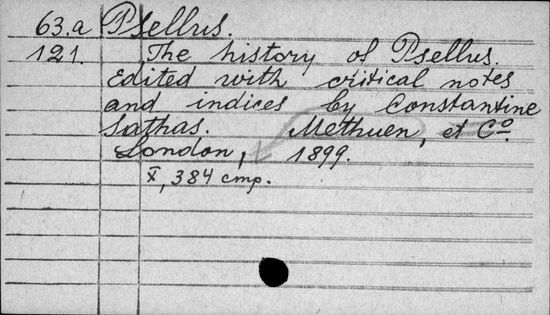 63.a Psellus.
121. The history of Psellus.
Edited with critical notes
and indices by Constantine
Sathas. Methuen, et Cº.
London, 1899.
X, 384 стр.